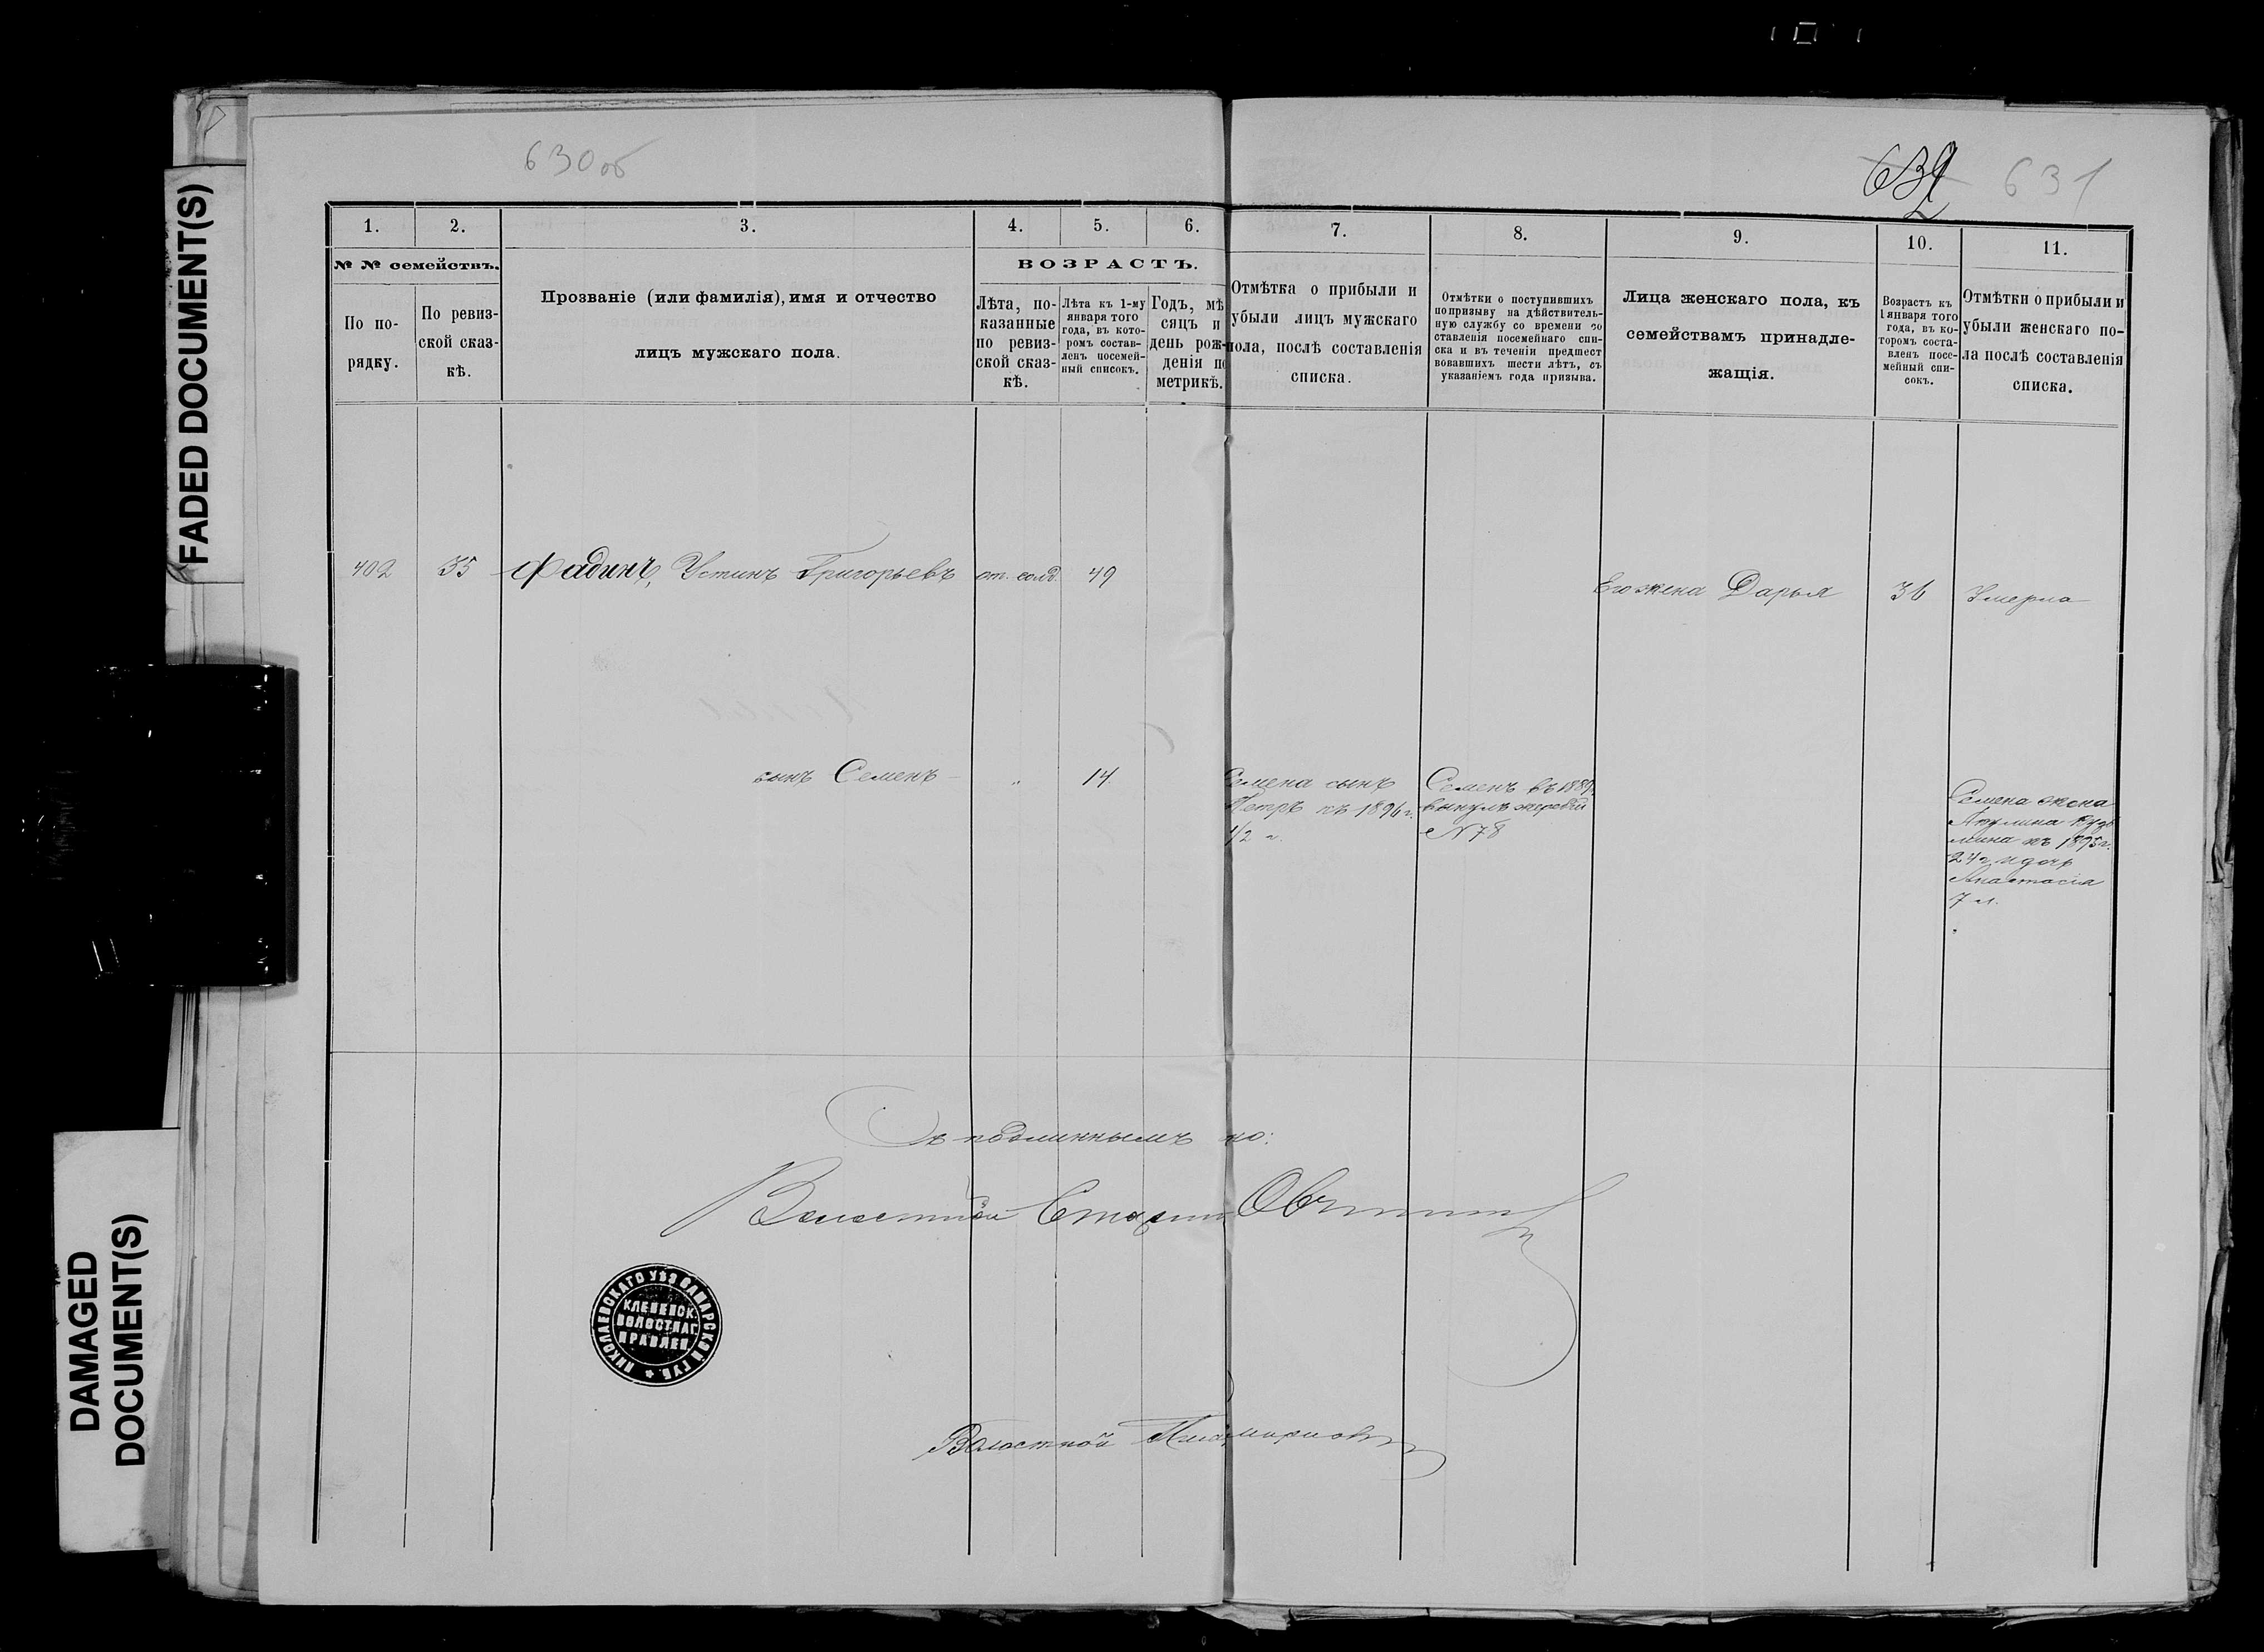 FADED DOCUMENT(S)
DAMAGED
DOCUMENT(S)
630об
632 631
1. 2. 3. 4. 5. 6. 7. 8. 9. 10. 11.
№ № семействъ.
По по-
рядку.
По ревиз-
ской сказ-
кѣ.
Прозваніе (или фамилія), имя и отчество
лицъ мужскаго пола.
ВОЗРАСТЪ.
Лѣта, по-
казанные
по ревиз-
ской сказ-
кѣ.
Лѣта къ 1-му
января того
года, въ кото-
ромъ состав-
ленъ посемей-
ный списокъ.
Годъ, мѣ
сяцъ и
день рож-
денія по
метрикѣ.
Отмѣтка о прибыли и
убыли лицъ мужскаго
пола, послѣ составленія
списка.
Отмѣтки о поступившихъ
по призыву на дѣйствитель-
ную службу со времени со
ставленія посемейнаго спи-
ска и въ теченіи предшест
вовавшихъ шести лѣтъ, съ
указаніемъ года призыва.
Лица женскаго пола, къ
семействамъ принадле-
жащія.
Возрастъ къ
1 января того
года, въ ко-
торомъ соста-
вленъ посе-
мейный спи-
сокъ.
Отмѣтки о прибыли и
убыли женскаго по-
ла послѣ составленія
списка.
402 35 Фадинъ, Устинъ Григорьевъ от. солд. 49 Его жена Дарья 36 Умерла
сынъ Семенъ " 14
Семена сынъ
Петръ къ 1896 г.
1/2 г.
Семенъ въ 1889
вынулъ жребій
№ 78
Семена жена
Акулина
къ 1895 г.
24 г. и дочь
Анастасія
7 л.
Съ подлиннымъ
Волостной Старшина
НИКОЛАЕВСКАГО УѢЗ САМАРСКОЙ ГУБ.
КЛЕВЕНСК.
ВОЛОСТНАГ.
ПРАВЛЕН.
Волостной